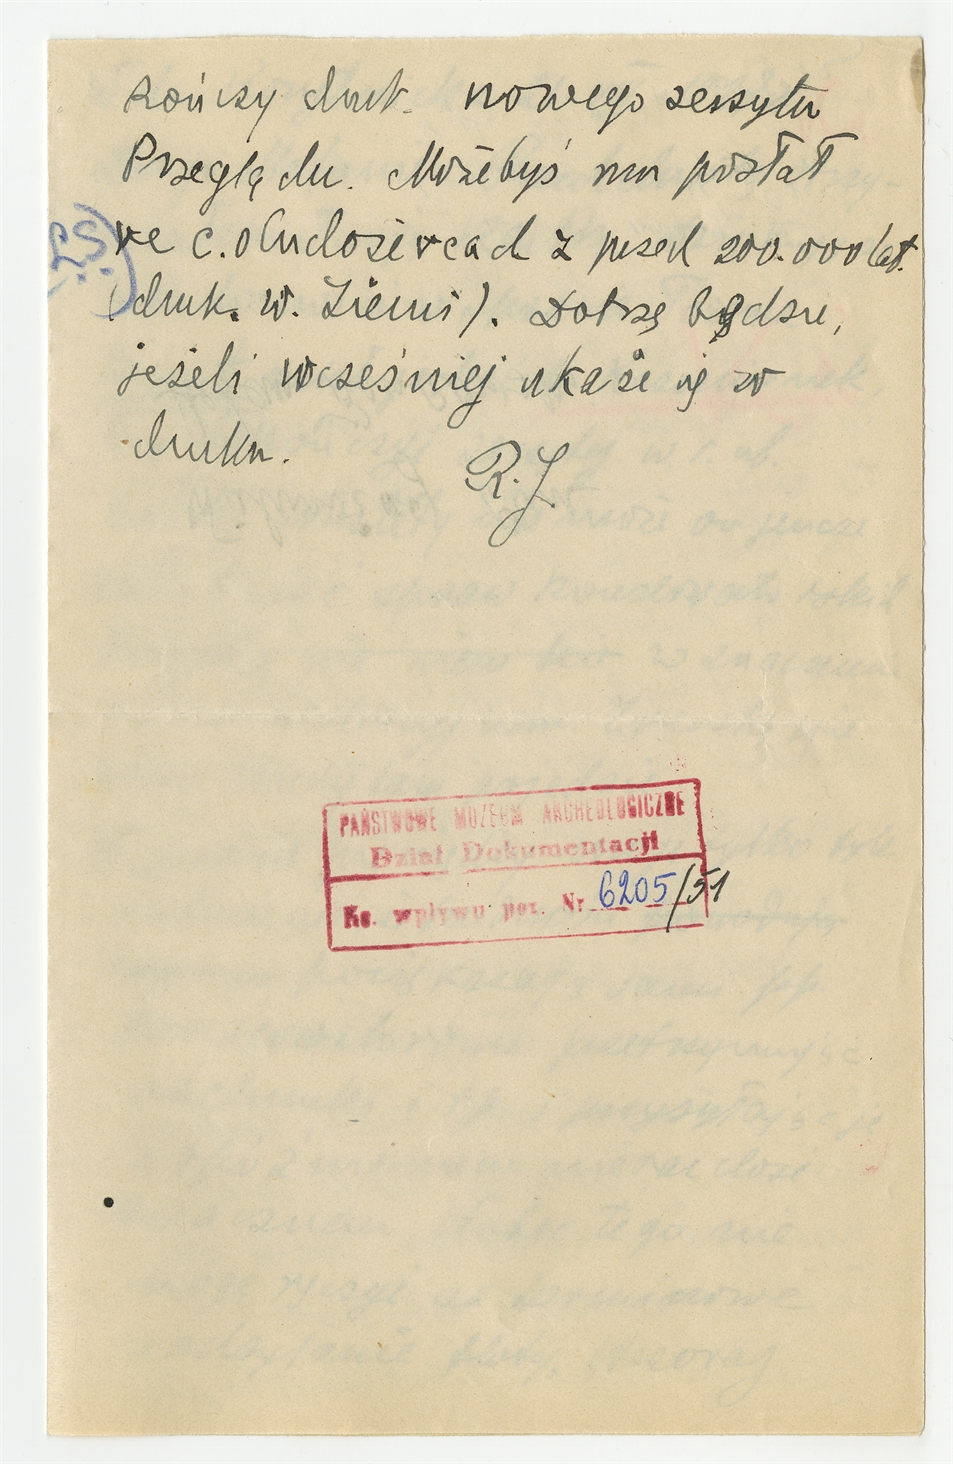 kończy druk. nowego zeszytu
Przeglądu. Możebyś mu posłał
re c. o ludożercach z przed 200.000 lat.
(druk. w. Ziemi). Dobrze będzie,
jeżeli wcześniej ukaże się w
druku.
R. J.
LS.
PAŃSTWOWE MUZEUM ARCHEOLOGICZNE
Dział Dokumentacji
Ks. wpływu poz. Nr 6205/51